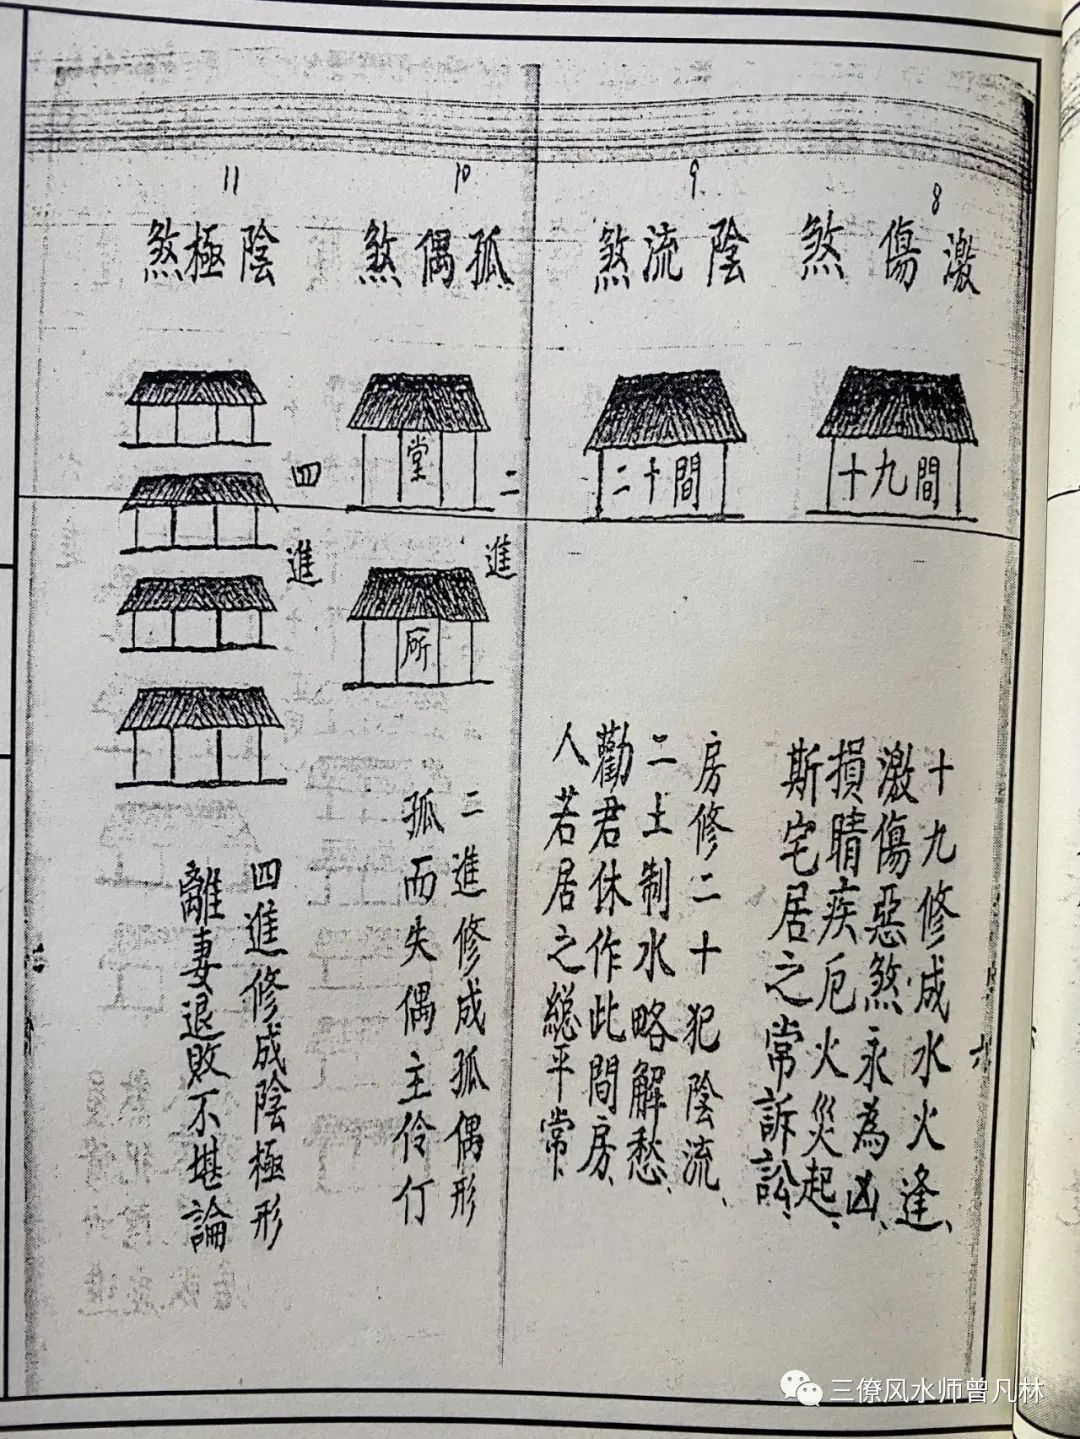 8
激傷煞
十九間
十九修成水火逢、
激傷惡煞永為凶、
損睛疾厄火災起、
斯宅居之常訴訟、
9
陰流煞
二十間
房修二十犯陰流、
二土制水略解愁、
勸君休作此間房、
人若居之總平常
10
孤偶煞
堂
二進
所
二進修成孤偶形
孤而失偶主伶仃
11
陰極煞
四進
四進修成陰極形
離妻退敗不堪論
六
三僚风水师曾凡林